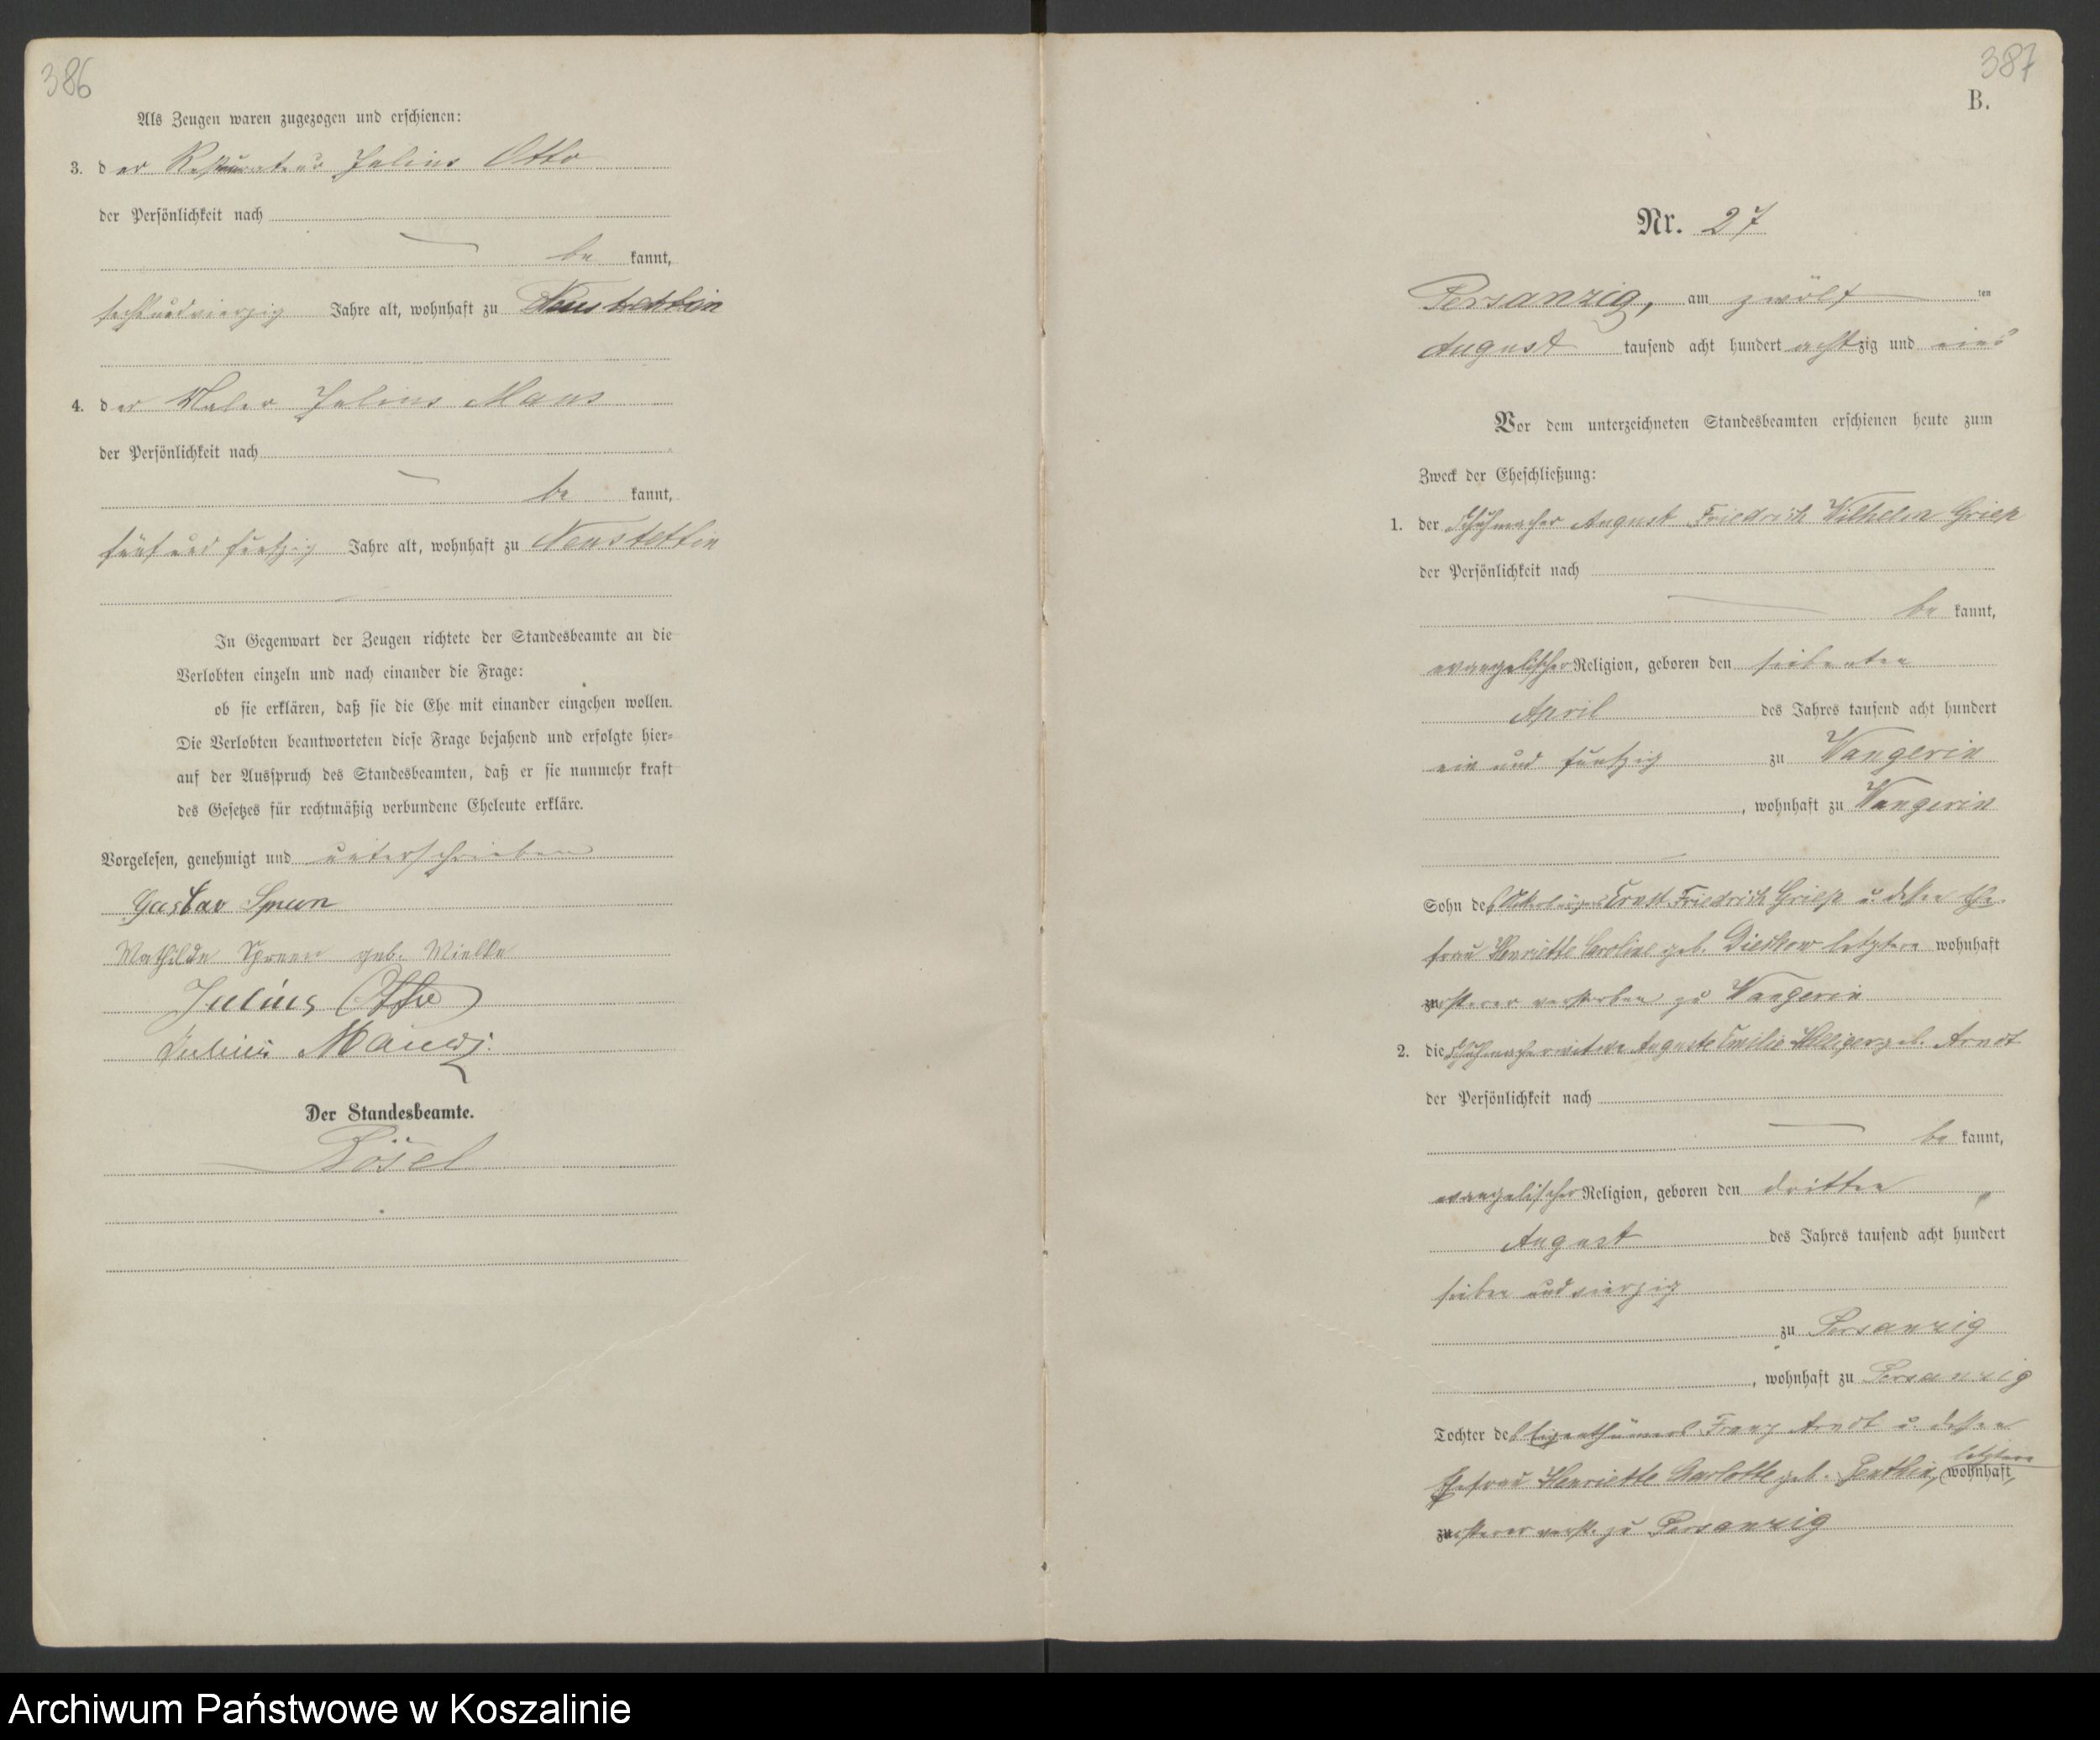 386
Als Zeugen waren zugezogen und erschienen:
3. der Restaurateur Julius Otto
der Persönlichkeit nach
be kannt,
sechsundvierzig Jahre alt, wohnhaft zu Neustettin
4. der Maler Julius Maus
der Persönlichkeit nach
be kannt,
fünf und funfzig Jahre alt, wohnhaft zu Neustettin
In Gegenwart der Zeugen richtete der Standesbeamte an die
Verlobten einzeln und nach einander die Frage:
ob sie erklären, daß sie die Ehe mit einander eingehen wollen.
Die Verlobten beantworteten diese Frage bejahend und erfolgte hier-
auf der Ausspruch des Standesbeamten, daß er sie nunmehr kraft
des Gesetzes für rechtmäßig verbundene Eheleute erkläre.
Vorgelesen, genehmigt und unterschrieben
Gustav
Mathilde Spreen geb. Mielke
Julius Otto
Julius
Der Standesbeamte.
Rösel
387
B.
Nr. 27
Persanzig, am zwölf ten
August tausend acht hundert achtzig und eins
Vor dem unterzeichneten Standesbeamten erschienen heute zum
Zweck der Eheschließung:
1. der Schuhmacher August Friedrich Wilhelm Griep
der Persönlichkeit nach
be kannt,
evangelischer Religion, geboren den siebenten
April des Jahres tausend acht hundert
ein und funfzig zu Wangerin
, wohnhaft zu Wangerin
Sohn des Ackerbürgers Ernst Friedrich Griep u. dessen Ehe-
frau Henriette Caroline geb. letztere wohnhaft
zu ersterer verstorben zu Wangerin
2. die Schuhmacherwitwe Auguste Emilie geb. Arndt
der Persönlichkeit nach
be kannt,
evangelischer Religion, geboren den dritten
August des Jahres tausend acht hundert
sieben und vierzig
zu Persanzig
, wohnhaft zu Persanzig
Tochter des Eigenthümers Franz Arndt u. dessen
Ehefrau Henriette Charlotte geb. letztere wohnhaft,
zu ersterer verst. zu Persanzig
Archiwum Państwowe w Koszalinie